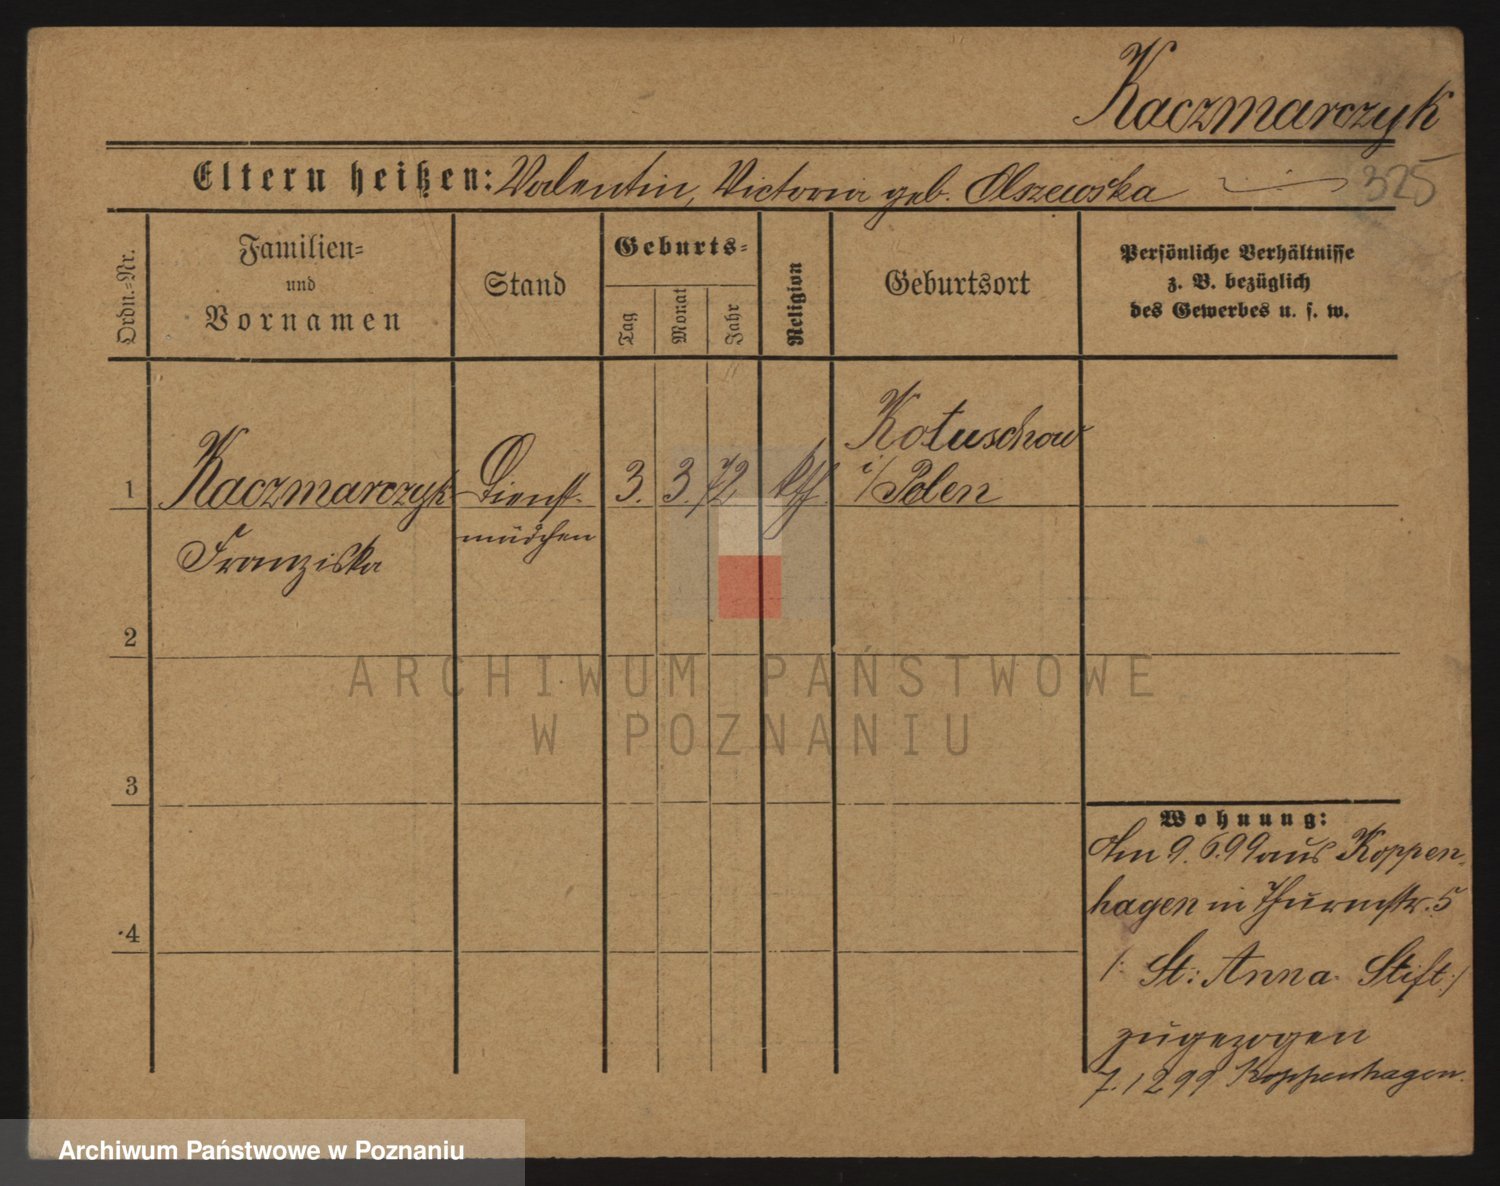 Kaczmarczyk
Eltern heißen: Valentin, Victoria geb. Olszewska
325
Ordn.-Nr.
Familien-
und
Vornamen
Stand
Geburts-
Tag
Monat
Jahr
Religion
Geburtsort
Persönliche Verhältnisse
z. B. bezüglich
des Gewerbes u. s. w.
1
Kaczmarczyk
Franziska
Dienst-
mädchen
3.
3.
72
kth.
Kotuschow
i/Polen
2
3
4
Wohnung:
Am 9.6.99 aus Koppen-
hagen in Thurmstr. 5
/: St: Anna Stift :/
zugezogen
7.12 99 Koppenhagen.
ARCHIWUM PAŃSTWOWE
W POZNANIU
Archiwum Państwowe w Poznaniu